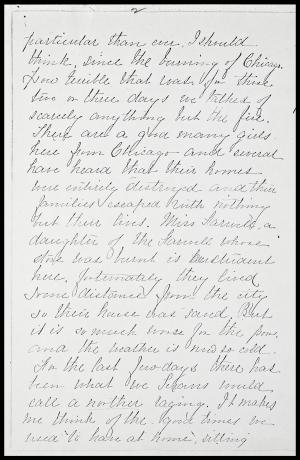 2
particular than ever, I should
think, since the burning of Chicago.
How terrible that was, for those
two or three days we talked of
scarcely anything but the fire.
There are a good many girls
here from Chicago and several
have heard that their homes
were entirely destroyed and their
families escaped with nothing
but their lives. Miss Farwell, a
daughter of the Farwell whose
store was burnt is a student
here, fortunately they lived
some distance from the city
so their house was saved. But
it is so much worse for the poor,
and the weather is now so cold.
For the last few days there has
been what we Texans would
call a norther raging. It makes
me think of the good times we
used to have at home, sitting